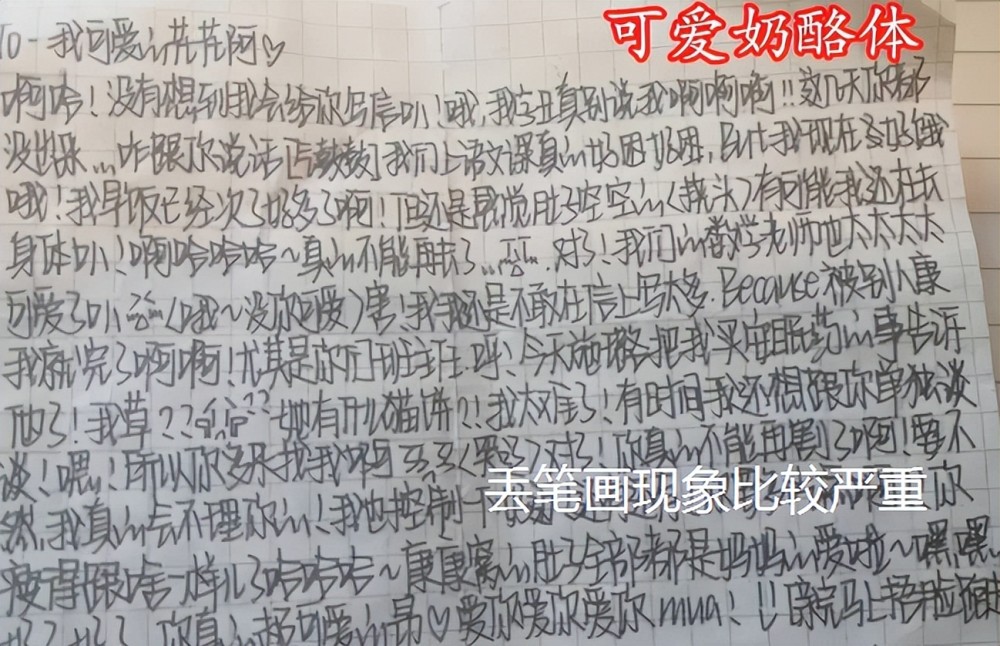 可爱奶酪体
TO-我可爱的花花阿♡
啊哈！没有想到我会给你写信叭！哦，我字丑真别说我啊啊啊！！这几天你都
没出来…咋跟你说话 我们上语文课真的好困好困，且我现在好饿
哦！我早饭已经次了好多了啊！但还是感觉肚子空空的（揍头）有可能我还在长
身体叭！啊哈哈哈~真的不能再长了….对了！我们的数学老师也太太太太
可爱了叭（哦~没你可爱）害！我还是不敢在信上写太多.Because被别人康
我就完了啊啊！尤其是你们班主任.呼！今天她把我买安眠药的事告诉
他了！我草？？她有什么猫饼？！我太难了！有时间我还想跟你单独谈
谈！嗯！所以你多来找我啊 对了！你真的不能再瘦了啊！要不
然，我真的会不理你的！我也控制一下
丢笔画现象比较严重
你
瘦得跟啥一样儿了哈哈哈~康康窝的肚子全部都是妈妈的爱啦~嘿嘿
好了好了 你真的超可爱的昂♡爱你爱你爱你mua！！！